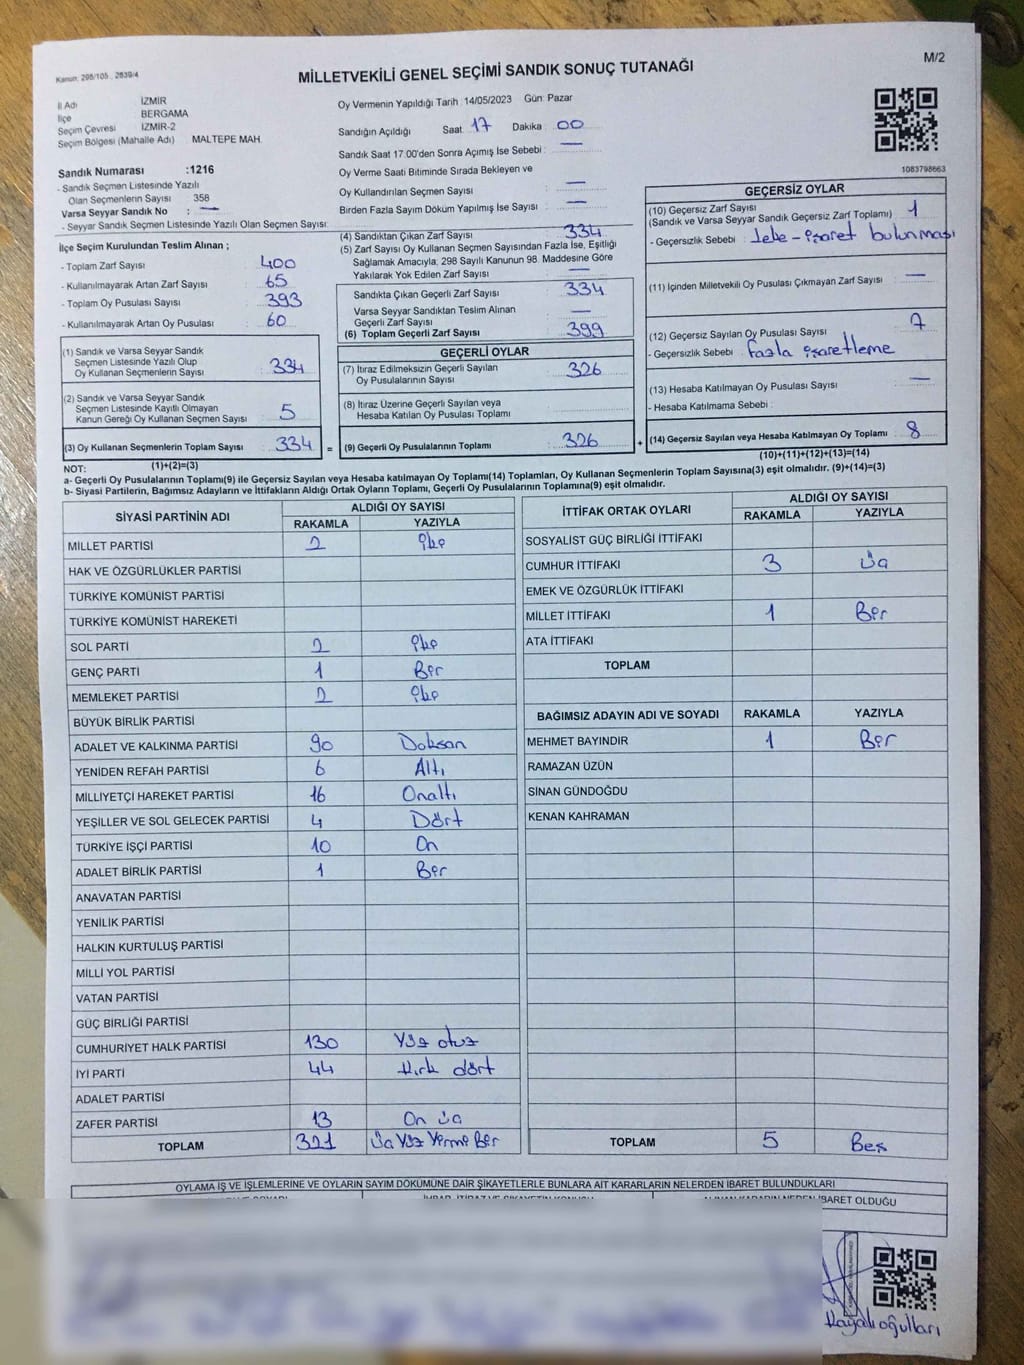 Kanun: 298/105, 2839/4
MİLLETVEKİLİ GENEL SEÇİMİ SANDIK SONUÇ TUTANAĞI
M/2
İl Adı İZMİR
İlçe BERGAMA
Seçim Çevresi İZMİR-2
Seçim Bölgesi (Mahalle Adı) MALTEPE MAH.
Sandık Numarası :1216
- Sandık Seçmen Listesinde Yazılı
Olan Seçmenlerin Sayısı 358
Varsa Seyyar Sandık No : —
- Seyyar Sandık Seçmen Listesinde Yazılı Olan Seçmen Sayısı:
İlçe Seçim Kurulundan Teslim Alınan ;
- Toplam Zarf Sayısı 400
- Kullanılmayarak Artan Zarf Sayısı 65
- Toplam Oy Pusulası Sayısı 393
- Kullanılmayarak Artan Oy Pusulası 60
(1) Sandık ve Varsa Seyyar Sandık
Seçmen Listesinde Yazılı Olup
Oy Kullanan Seçmenlerin Sayısı 334
(2) Sandık ve Varsa Seyyar Sandık
Seçmen Listesinde Kayıtlı Olmayan
Kanun Gereği Oy Kullanan Seçmen Sayısı 5
(3) Oy Kullanan Seçmenlerin Toplam Sayısı 334 =
(1)+(2)=(3)
Oy Vermenin Yapıldığı Tarih :14/05/2023 Gün: Pazar
Sandığın Açıldığı Saat 17 Dakika 00
Sandık Saat 17.00'den Sonra Açılmış İse Sebebi : —
Oy Verme Saati Bitiminde Sırada Bekleyen ve
Oy Kullandırılan Seçmen Sayısı : —
Birden Fazla Sayım Döküm Yapılmış İse Sayısı : —
(4) Sandıktan Çıkan Zarf Sayısı 334
(5) Zarf Sayısı Oy Kullanan Seçmen Sayısından Fazla İse, Eşitliği
Sağlamak Amacıyla; 298 Sayılı Kanunun 98. Maddesine Göre
Yakılarak Yok Edilen Zarf Sayısı —
Sandıkta Çıkan Geçerli Zarf Sayısı 334
Varsa Seyyar Sandıktan Teslim Alınan
Geçerli Zarf Sayısı —
(6) Toplam Geçerli Zarf Sayısı 399
GEÇERLİ OYLAR
(7) İtiraz Edilmeksizin Geçerli Sayılan
Oy Pusulalarının Sayısı 326
(8) İtiraz Üzerine Geçerli Sayılan veya
Hesaba Katılan Oy Pusulası Toplamı
(9) Geçerli Oy Pusulalarının Toplamı 326 +
1083798663
GEÇERSİZ OYLAR
(10) Geçersiz Zarf Sayısı 1
(Sandık ve Varsa Seyyar Sandık Geçersiz Zarf Toplamı)
- Geçersizlik Sebebi : leke - işaret bulunması
(11) İçinden Milletvekili Oy Pusulası Çıkmayan Zarf Sayısı —
(12) Geçersiz Sayılan Oy Pusulası Sayısı 7
- Geçersizlik Sebebi : fazla işaretleme
(13) Hesaba Katılmayan Oy Pusulası Sayısı —
- Hesaba Katılmama Sebebi :
(14) Geçersiz Sayılan veya Hesaba Katılmayan Oy Toplamı 8
(10)+(11)+(12)+(13)=(14)
NOT:
a- Geçerli Oy Pusulalarının Toplamı(9) ile Geçersiz Sayılan veya Hesaba katılmayan Oy Toplamı(14) Toplamları, Oy Kullanan Seçmenlerin Toplam Sayısına(3) eşit olmalıdır. (9)+(14)=(3)
b- Siyasi Partilerin, Bağımsız Adayların ve İttifakların Aldığı Ortak Oyların Toplamı, Geçerli Oy Pusulalarının Toplamına(9) eşit olmalıdır.
SİYASİ PARTİNİN ADI ALDIĞI OY SAYISI
RAKAMLA YAZIYLA
MİLLET PARTİSİ 2 İki
HAK VE ÖZGÜRLÜKLER PARTİSİ
TÜRKİYE KOMÜNİST PARTİSİ
TÜRKİYE KOMÜNİST HAREKETİ
SOL PARTİ 2 İki
GENÇ PARTİ 1 Bir
MEMLEKET PARTİSİ 2 İki
BÜYÜK BİRLİK PARTİSİ
ADALET VE KALKINMA PARTİSİ 90 Doksan
YENİDEN REFAH PARTİSİ 6 Altı
MİLLİYETÇİ HAREKET PARTİSİ 16 Onaltı
YEŞİLLER VE SOL GELECEK PARTİSİ 4 Dört
TÜRKİYE İŞÇİ PARTİSİ 10 On
ADALET BİRLİK PARTİSİ 1 Bir
ANAVATAN PARTİSİ
YENİLİK PARTİSİ
HALKIN KURTULUŞ PARTİSİ
MİLLİ YOL PARTİSİ
VATAN PARTİSİ
GÜÇ BİRLİĞİ PARTİSİ
CUMHURİYET HALK PARTİSİ 130 Yüz otuz
İYİ PARTİ 44 Kırk dört
ADALET PARTİSİ
ZAFER PARTİSİ 13 On üç
TOPLAM 321 Üç Yüz Yirmi Bir
İTTİFAK ORTAK OYLARI ALDIĞI OY SAYISI
RAKAMLA YAZIYLA
SOSYALİST GÜÇ BİRLİĞİ İTTİFAKI
CUMHUR İTTİFAKI 3 Üç
EMEK VE ÖZGÜRLÜK İTTİFAKI
MİLLET İTTİFAKI 1 Bir
ATA İTTİFAKI
TOPLAM
BAĞIMSIZ ADAYIN ADI VE SOYADI RAKAMLA YAZIYLA
MEHMET BAYINDIR 1 Bir
RAMAZAN ÜZÜN
SİNAN GÜNDOĞDU
KENAN KAHRAMAN
TOPLAM 5 Beş
OYLAMA İŞ VE İŞLEMLERİNE VE OYLARIN SAYIM DÖKÜMÜNE DAİR ŞİKAYETLERLE BUNLARA AİT KARARLARIN NELERDEN İBARET BULUNDUKLARI
İBARET OLDUĞU
Hayalioğulları